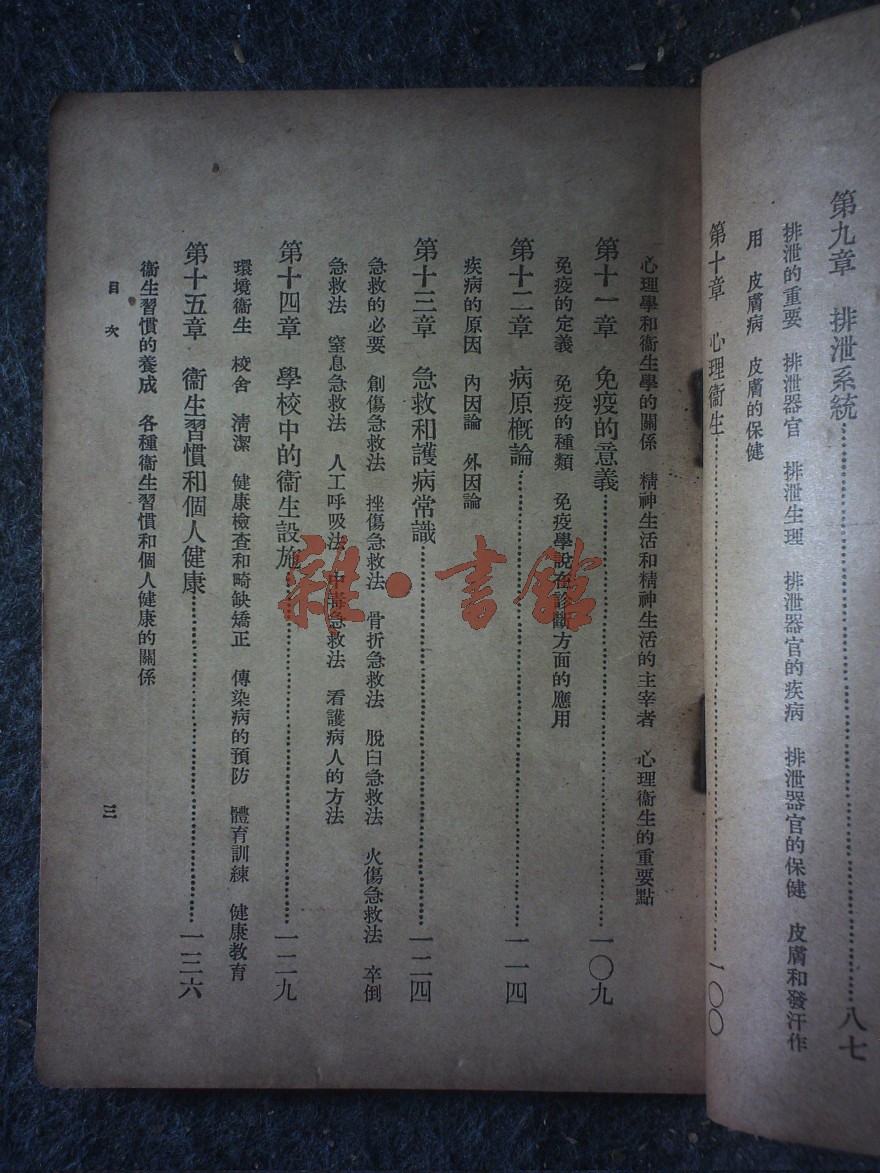 第九章　排泄系統…………八七
排泄的重要　排泄器官　排泄生理　排泄器官的疾病　排泄器官的保健　皮膚和發汗作
用　皮膚病　皮膚的保健
第十章　心理衞生…………一〇〇
心理學和衞生學的關係　精神生活和精神生活的主宰者　心理衞生的重要點
第十一章　免疫的意義…………一〇九
免疫的定義　免疫的種類　免疫學說在診斷方面的應用
第十二章　病原概論…………一一四
疾病的原因　內因論　外因論
第十三章　急救和護病常識…………一二四
急救的必要　創傷急救法　挫傷急救法　骨折急救法　脫臼急救法　火傷急救法　卒倒
急救法　窒息急救法　人工呼吸法　中毒急救法　看護病人的方法
第十四章　學校中的衞生設施…………一二九
環境衞生　校舍　淸潔　健康檢查和畸缺矯正　傳染病的預防　體育訓練　健康教育
第十五章　衞生習慣和個人健康…………一三六
衞生習慣的養成　各種衞生習慣和個人健康的關係
目次
三
雜·書館